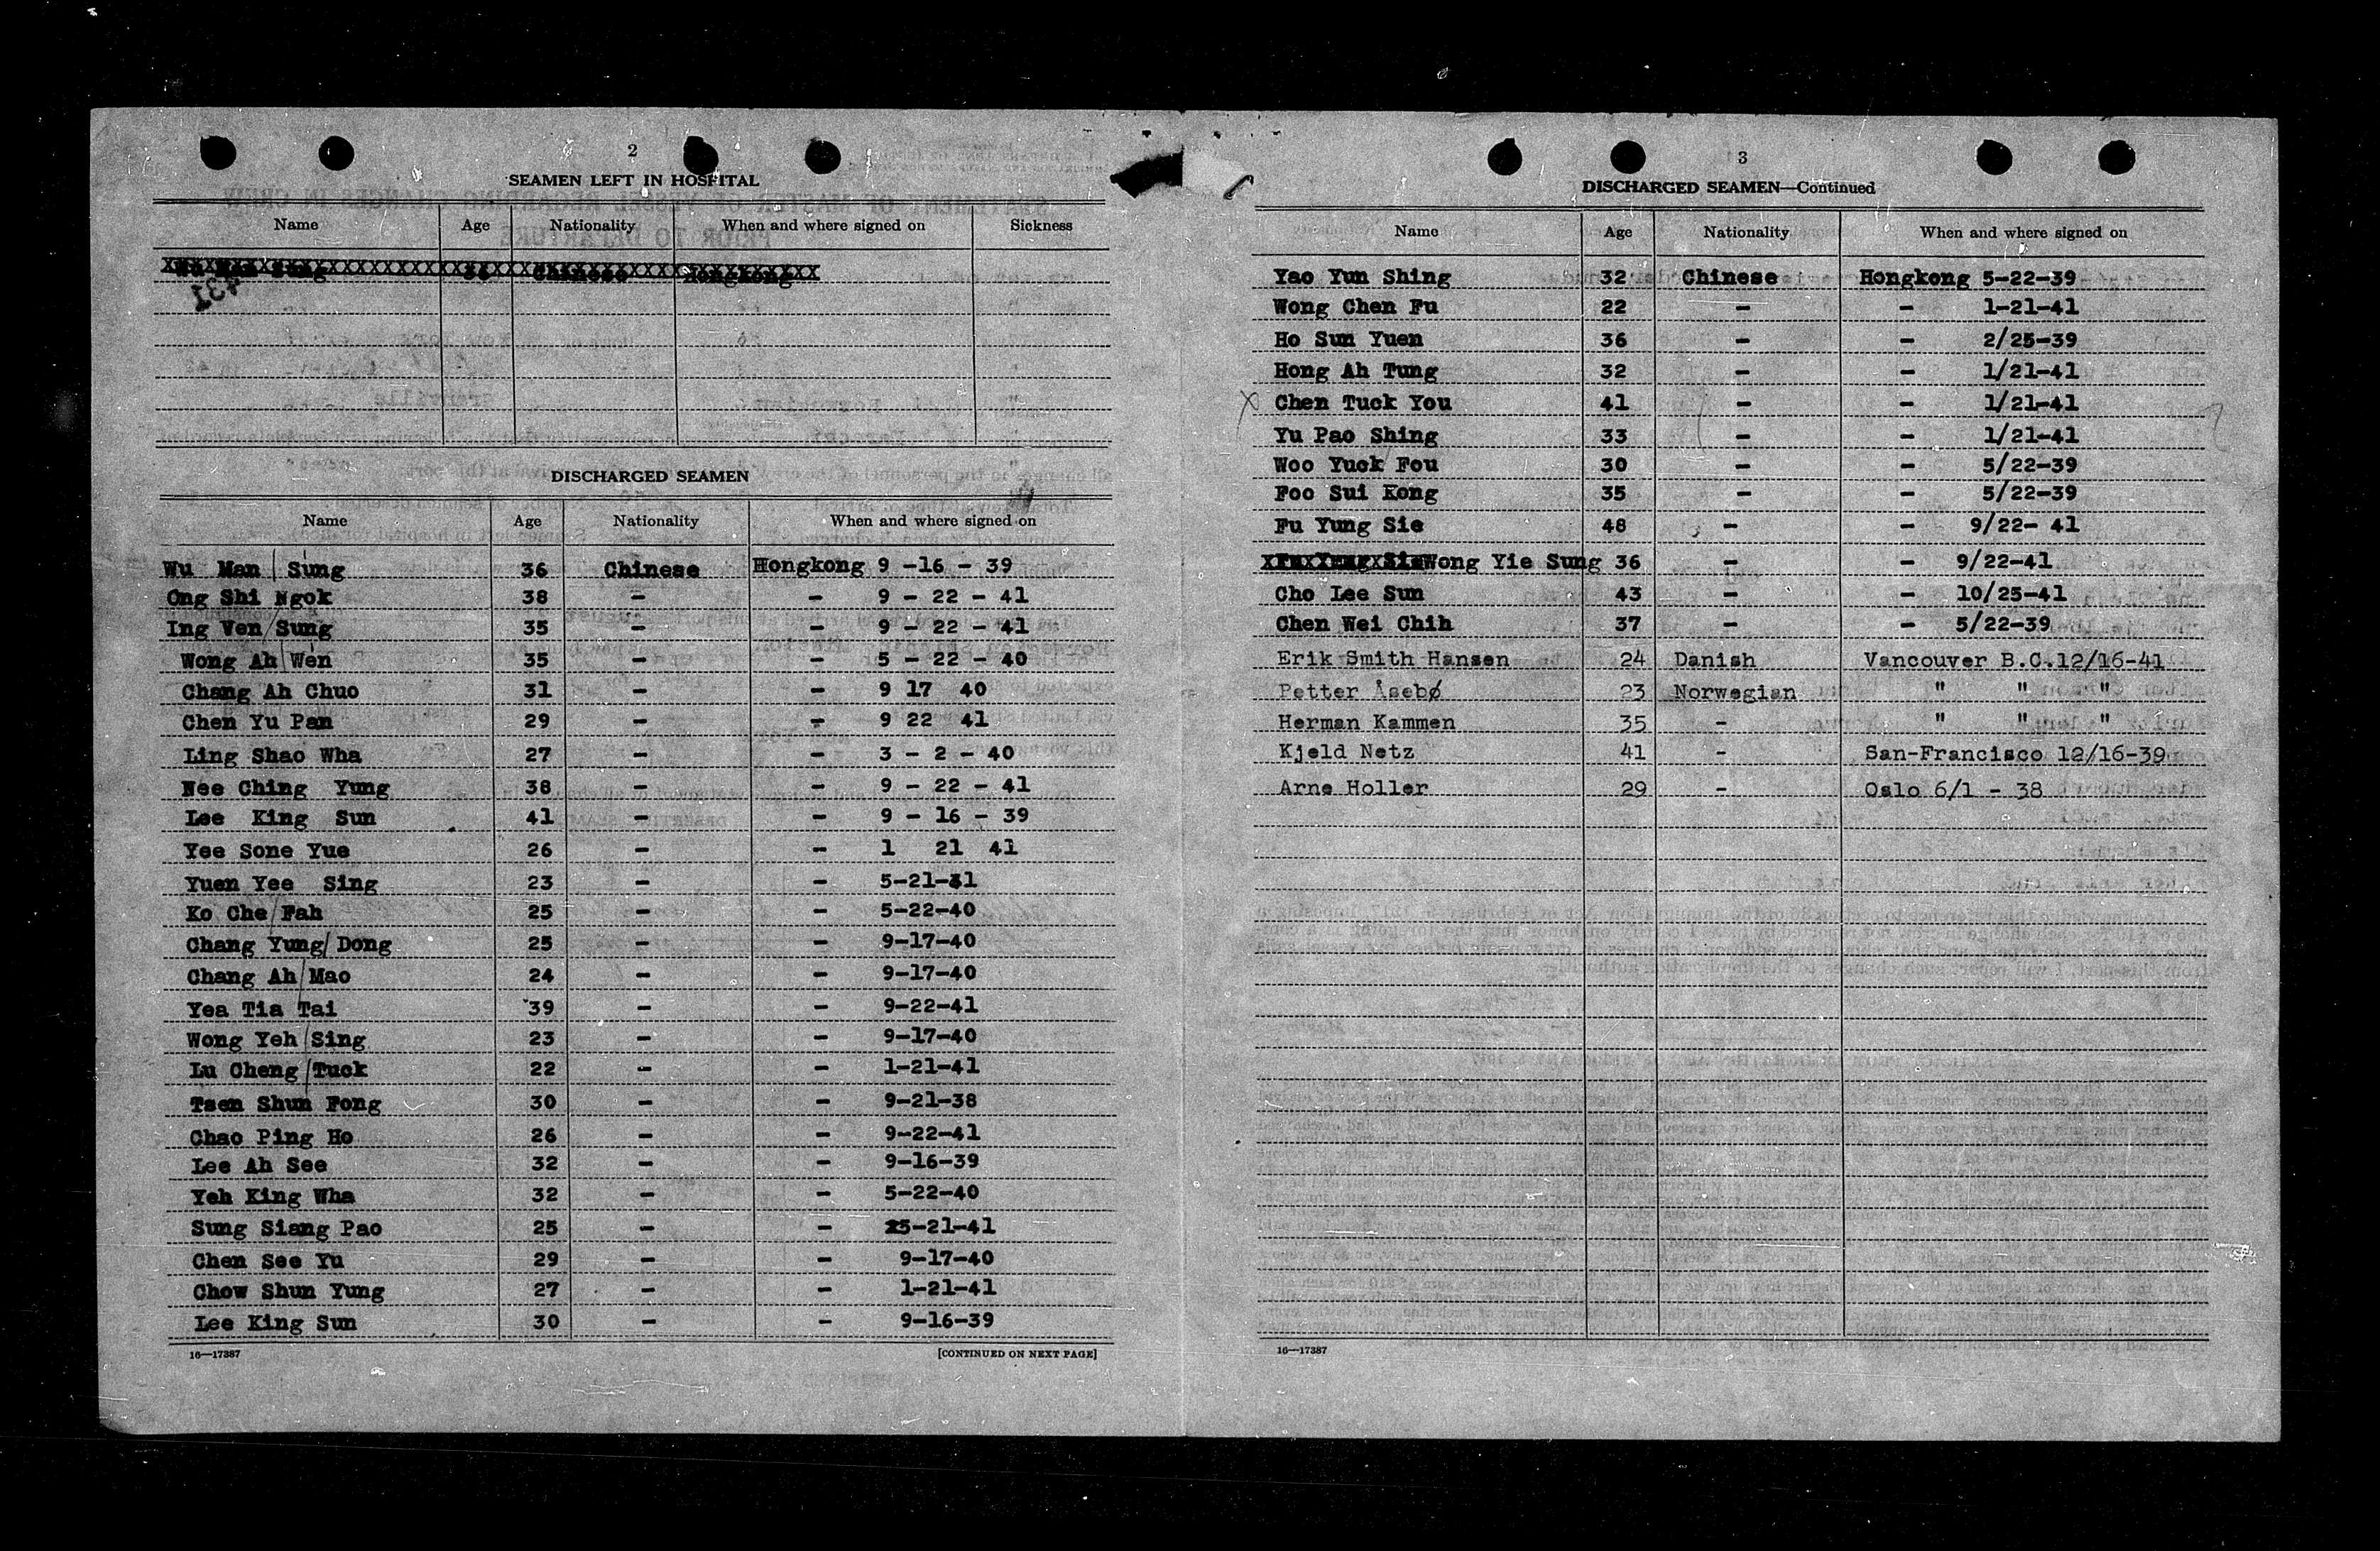 2
SEAMEN LEFT IN HOSPITAL
Name Age Nationality When and where signed on Sickness
Wu Man Sung 36 Chinese Hongkong
DISCHARGED SEAMEN
Name Age Nationality When and where signed on
Wu Man Sung 36 Chinese Hongkong 9 -16 - 39
Ong Shi Ngok 38 - - 9 - 22 - 41
Ing Ven Sung 35 - - 9 - 22 - 41
Wong Ah Wen 35 - - 5 - 22 - 40
Chang Ah Chuo 31 - - 9 17 40
Chen Yu Pan 29 - - 9 22 41
Ling Shao Wha 27 - - 3 - 2 - 40
Nee Ching Yung 38 - - 9 - 22 - 41
Lee King Sun 41 - - 9 - 16 - 39
Yee Sone Yue 26 - - 1 21 41
Yuen Yee Sing 23 - - 5-21-41
Ko Che Fah 25 - - 5-22-40
Chang Yung Dong 25 - - 9-17-40
Chang Ah Mao 24 - - 9-17-40
Yea Tia Tai 39 - - 9-22-41
Wong Yeh Sing 23 - - 9-17-40
Lu Cheng Tuck 22 - - 1-21-41
Tsen Shun Fong 30 - - 9-21-38
Chao Ping Ho 26 - - 9-22-41
Lee Ah See 32 - - 9-16-39
Yeh King Wha 32 - - 5-22-40
Sung Siang Pao 25 - - 5-21-41
Chen See Yu 29 - - 9-17-40
Chow Shun Yung 27 - - 1-21-41
Lee King Sun 30 - - 9-16-39
16—17387 [CONTINUED ON NEXT PAGE]
3
DISCHARGED SEAMEN—Continued
Name Age Nationality When and where signed on
Yao Yun Shing 32 Chinese Hongkong 5-22-39
Wong Chen Fu 22 - - 1-21-41
Ho Sun Yuen 36 - - 2/25-39
Hong Ah Tung 32 - - 1/21-41
X Chen Tuck You 41 - - 1/21-41
Yu Pao Shing 33 - - 1/21-41
Woo Yuck Fou 30 - - 5/22-39
Foo Sui Kong 35 - - 5/22-39
Fu Yung Sie 48 - - 9/22- 41
Fu Yung Sie Wong Yie Sung 36 - - 9/22-41
Cho Lee Sun 43 - - 10/25-41
Chen Wei Chih 37 - - 5/22-39
Erik Smith Hansen 24 Danish Vancouver B.C.12/16-41
Petter Åsebø 23 Norwegian " " "
Herman Kammen 35 - " " "
Kjeld Netz 41 - San-Francisco 12/16-39
Arne Holler 29 - Oslo 6/1 - 38
16—17387